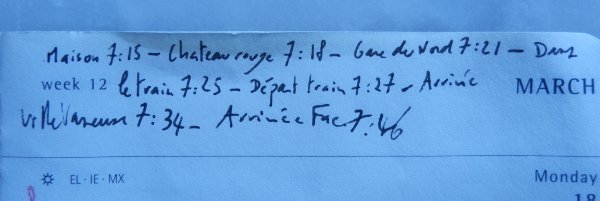 Maison 7:15 – Chateau rouge 7:18 – Gare du Nord 7:21 – Dans
week 12 le train 7:25 – Départ train 7:27 – Arrivée MARCH
villetaneuse 7:34 – Arrivée Fac 7:46
EL · IE · MX Monday
18